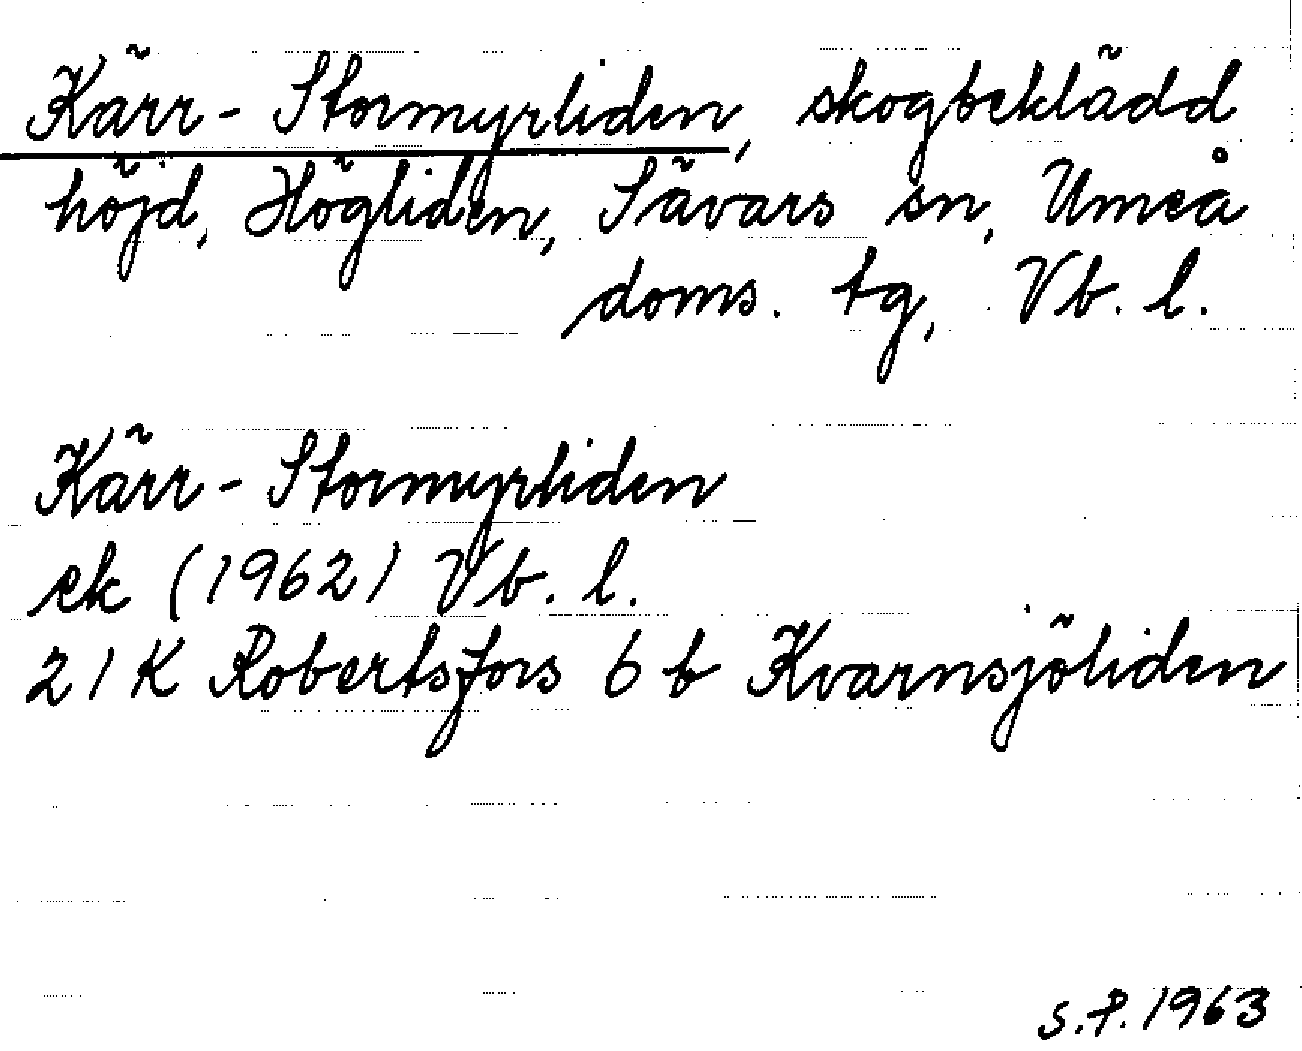 Kärr-Stormyrliden, skogbeklädd
höjd, Högliden, Sävars sn, Umeå
doms. tg, Vb. l.
Kärr-Stormyrliden
ek (1962) Vb. l.
21 K Robertsfors 6 b Kvarnsjöliden
s.P. 1963